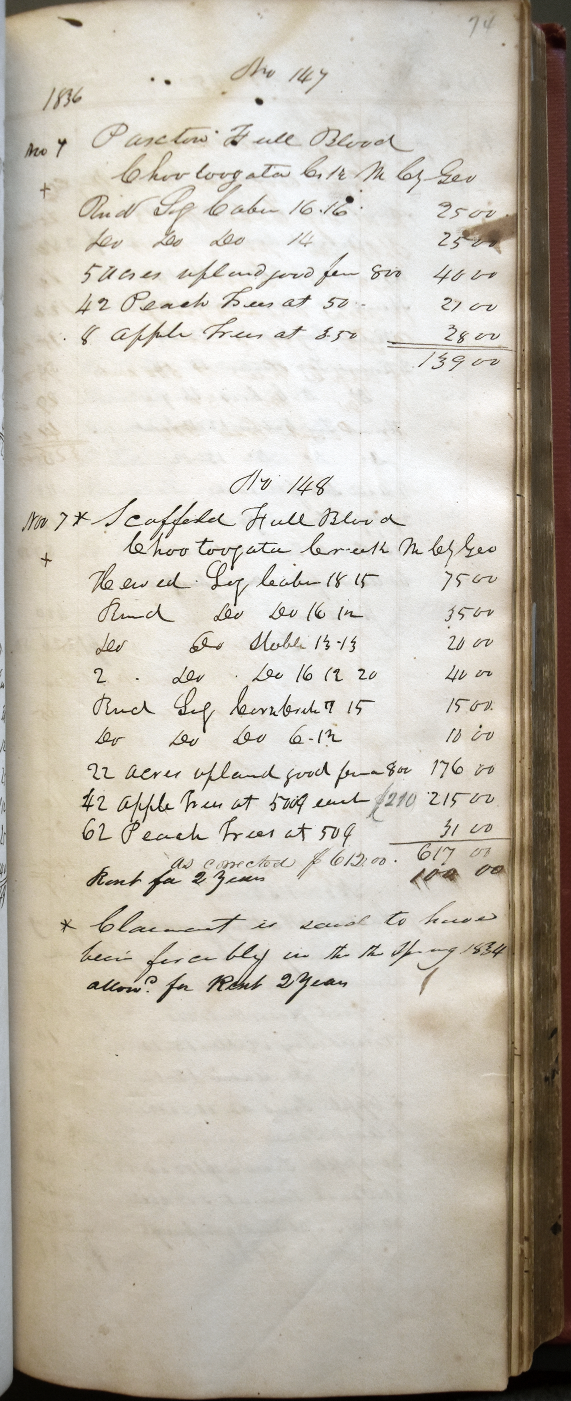 74
No 147
1836
Nov 7 Paxton Full Blood
+ Chootoogata Crk M Cty Geo
Rnd Log Cabin 16.16 25 00
Do Do Do 14 25 00
5 acres upland good fen 800 40 00
42 Peach Trees at 50 21 00
8 Apple Trees at 3.50 28 00
139 00
No 148
Nov 7 * Scaffold Full Blood
+ Chootoogata Creek M Cty Geo
Hewed Log Cabin 18 15 75 00
Rnd Do Do 16 12 35 00
Do Do Stable 13-13 20 00
2 Do Do 16 12 20 40 00
Rnd Log Corn 7 15 15 00
Do Do Do 6-12 10 00
22 acres upland good fence 800 176 00
42 Apple Trees at 500 each $210 215 00
62 Peach Trees at 50 31 00
as corrected $612.00. 617 00
Rent for 2 Years 100 00
* Claimant is said to have
been forceably in the the Spring 1834
allowd for Rent 2 Years